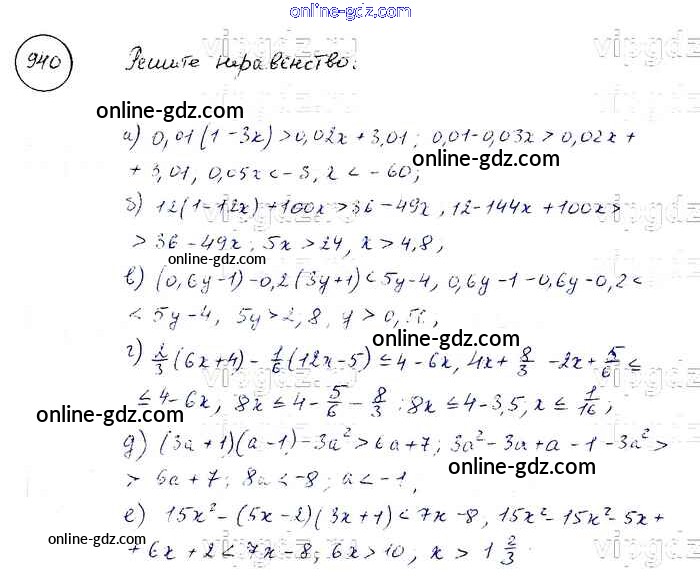 online-gdz.com
940 Решите неравенство.
online-gdz.com
а) 0,01(1-3x)>0,02x+3,01; 0,01-0,03x>0,02x+
+3,01, 0,05x<-3, x<-60;
б) 12(1-12x)+100x>36-49x, 12-144x+100x>
>36-49x; 5x>24, x>4,8,
online-gdz.com
в) (0,6y-1)-0,2(3y+1)<5y-4, 0,6y-1-0,6y-0,2<
<5y-4, 5y>2,8, y>0,56,
online-gdz.com
г) 2/3(6x+4)-1/6(12x-5)≤4-6x, 4x+8/3-2x+5/6≤
≤4-6x, 8x≤4-5/6-8/3; 8x≤4-3,5, x≤1/16;
online-gdz.com
д) (3a+1)(a-1)-3a²>6a+7; 3a²-3a+a-1-3a²>
>6a+7; 8a<-8; a<-1,
online-gdz.com
е) 15x²-(5x-2)(3x+1)<7x-8, 15x²-15x²-5x+
+6x+2<7x-8; 6x>10, x>1 2/3
online-gdz.com